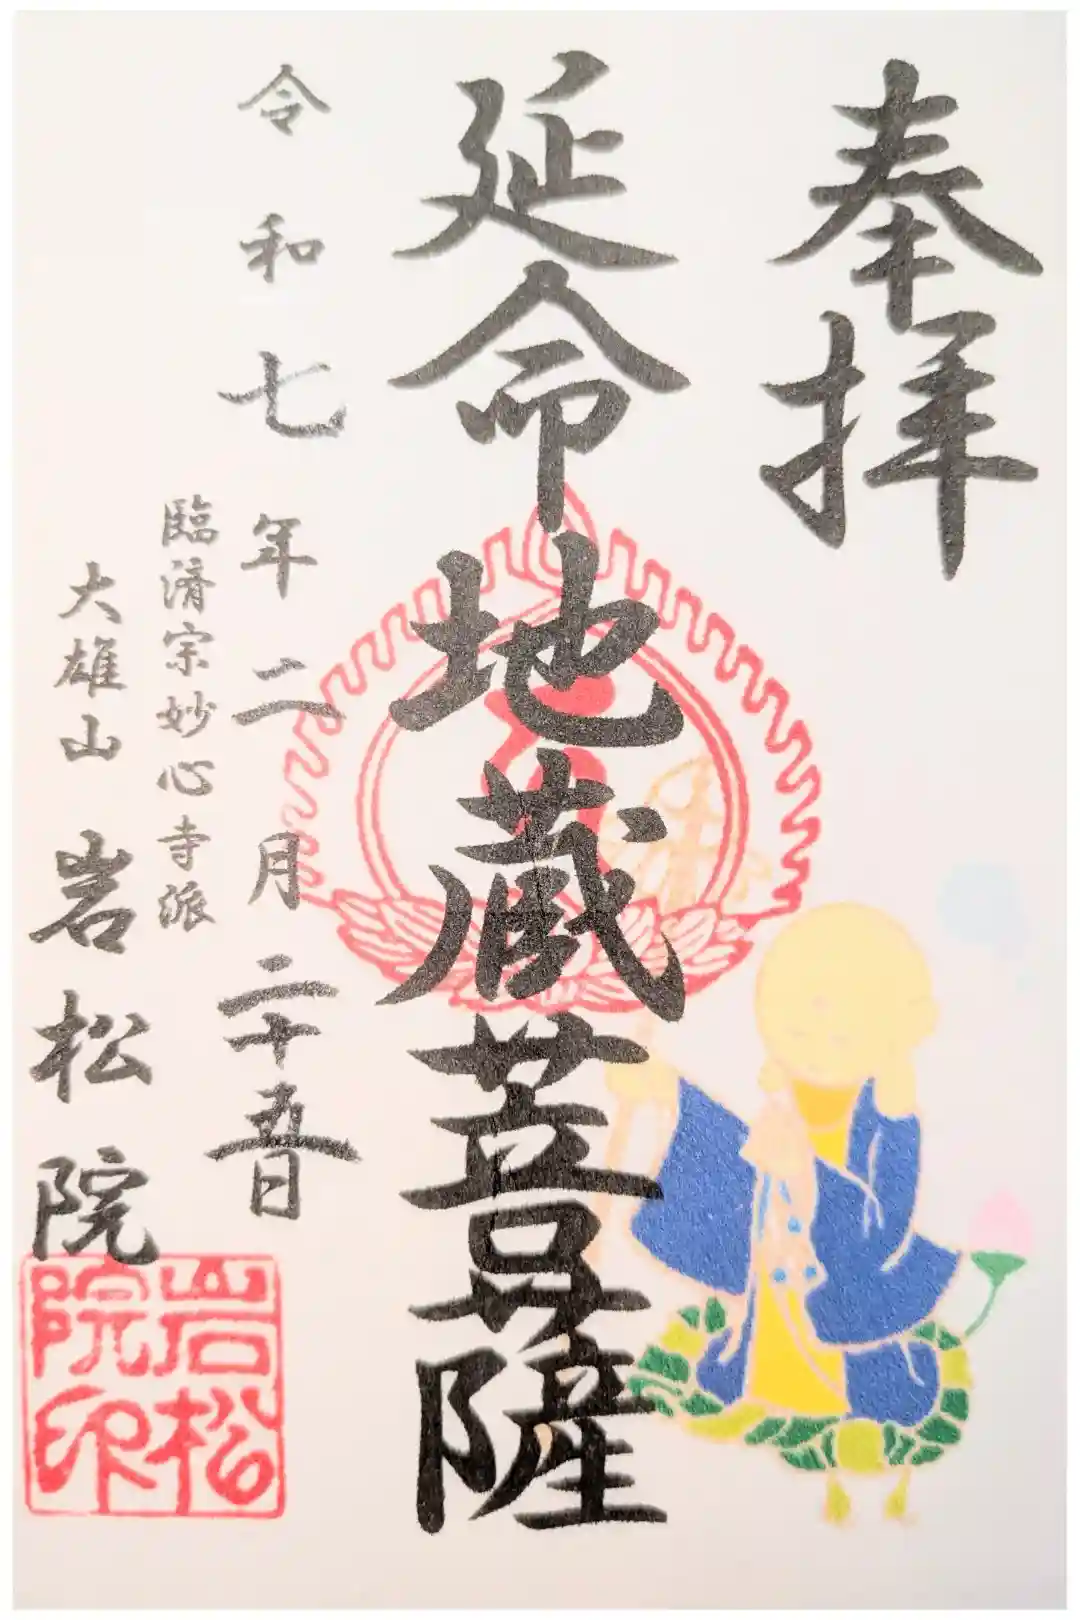 奉拝
延命地蔵菩薩
令和七年二月二十五日
臨済宗妙心寺派
大雄山 岩松院
岩松
院印